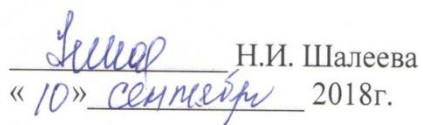 Н.И. Шалеева
« 10 » сентября 2018г.